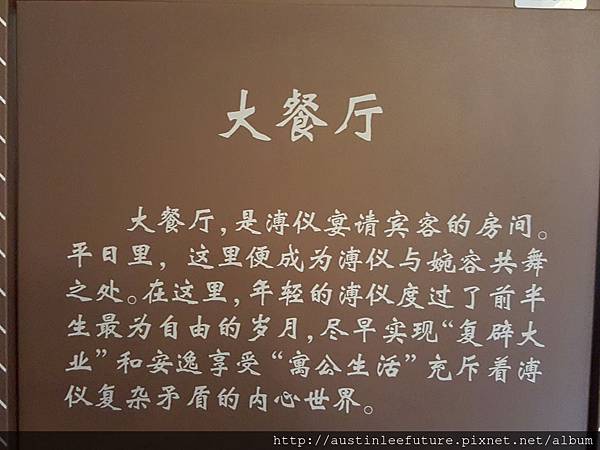 大餐厅
大餐厅，是溥仪宴请宾客的房间。
平日里，这里便成为溥仪与婉容共舞
之处。在这里，年轻的溥仪度过了前半
生最为自由的岁月，尽早实现“复辟大
业”和安逸享受“寓公生活”充斥着溥
仪复杂矛盾的内心世界。
http://austinleefuture.pixnet.net/album